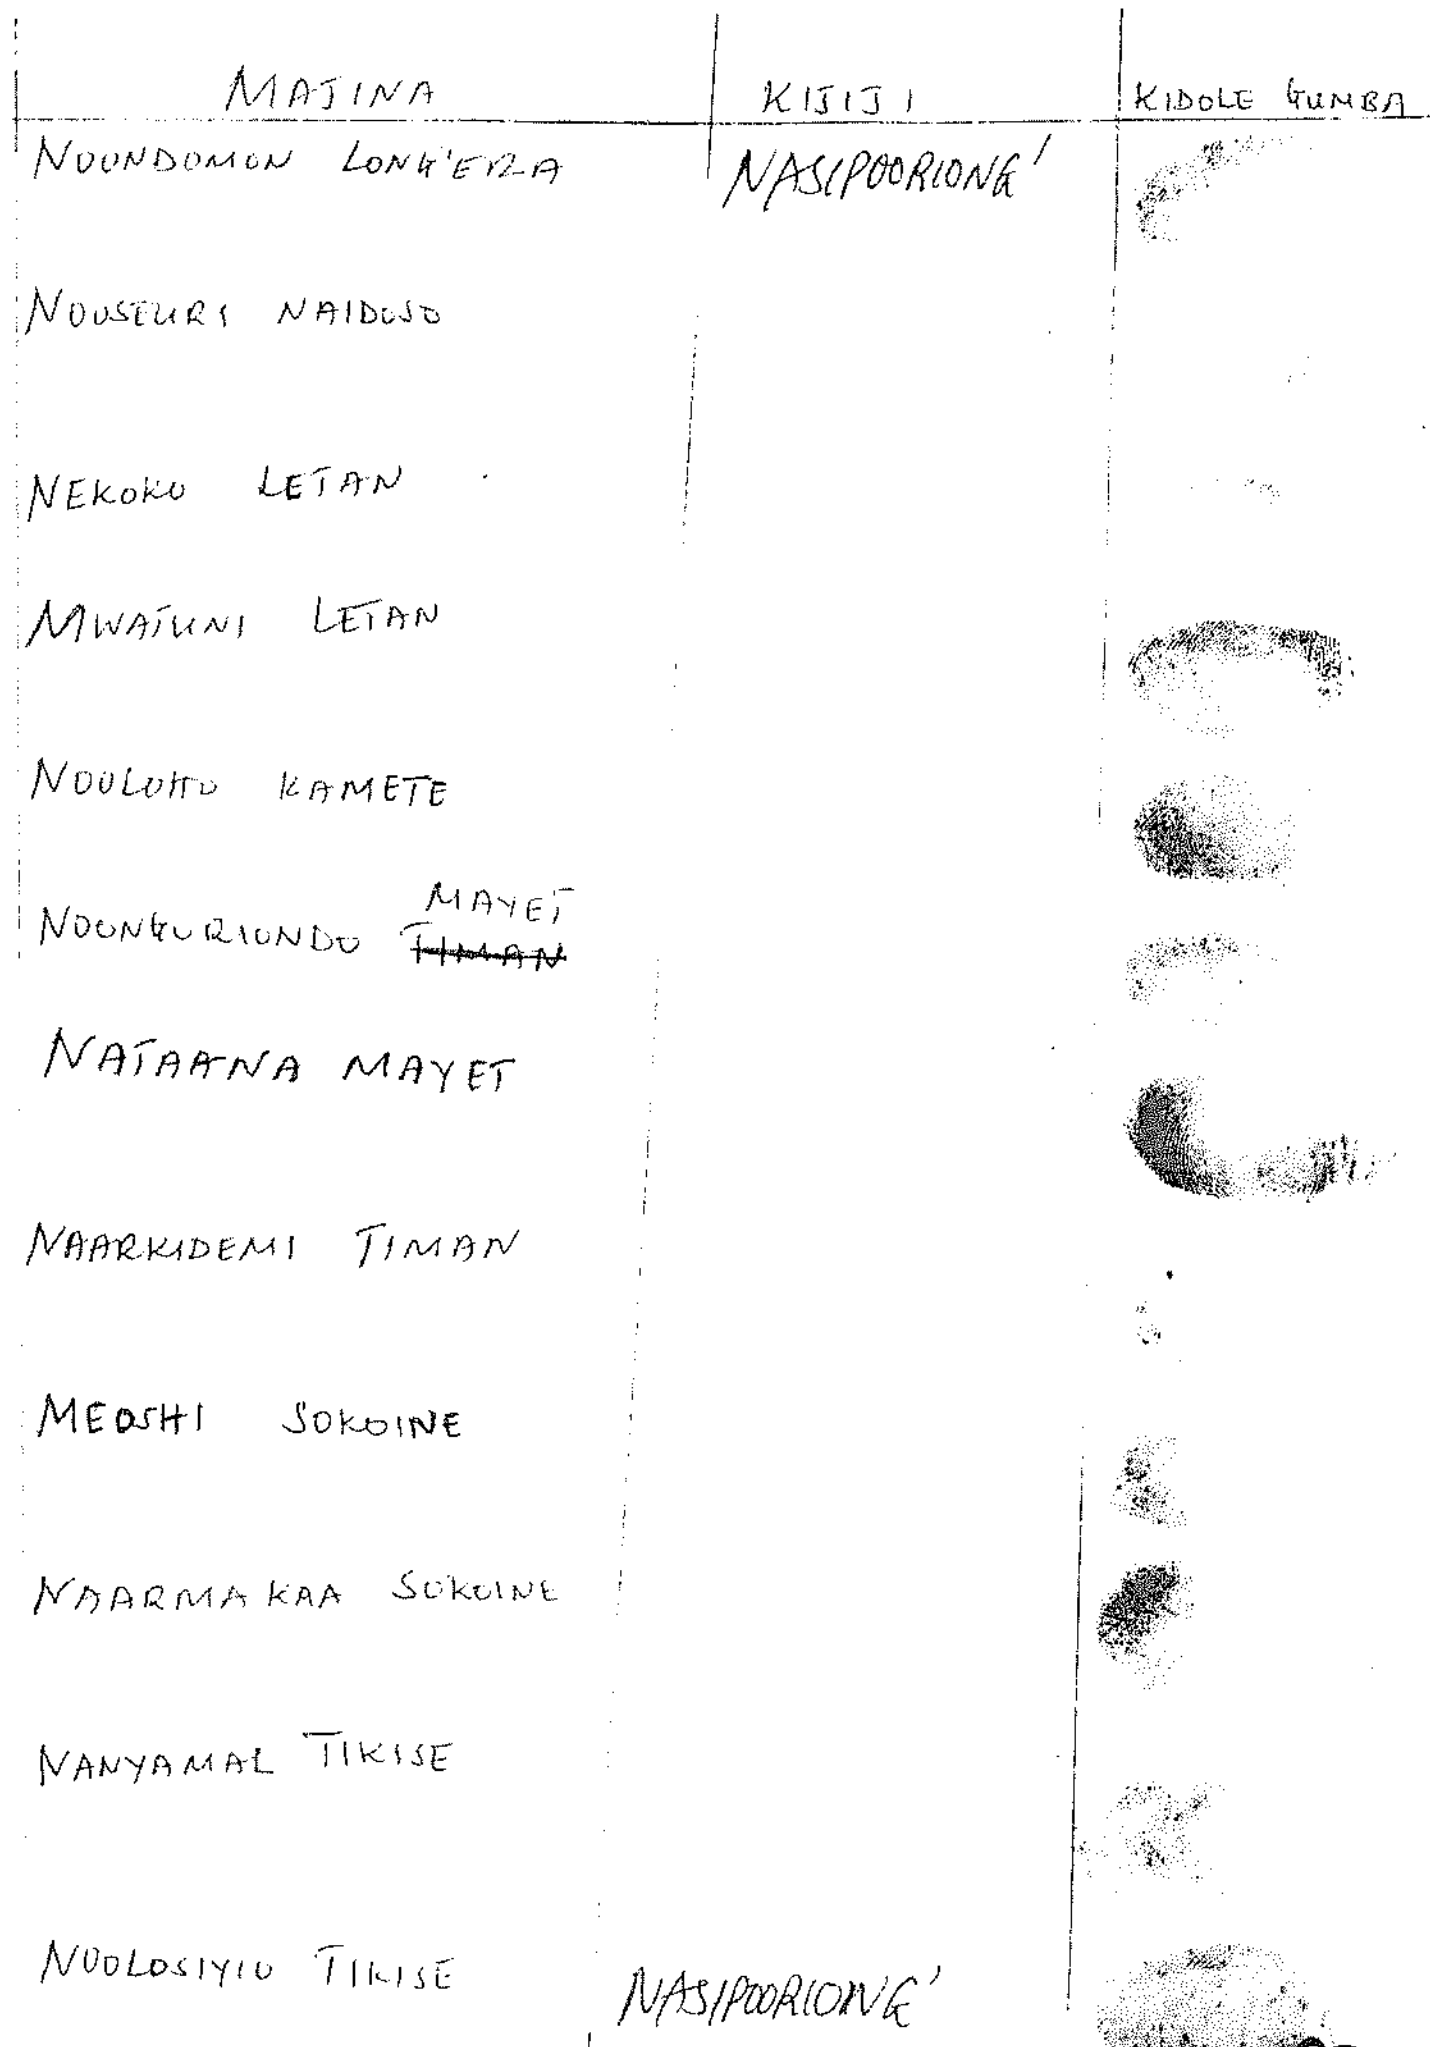 MAJINA KIJIJI KIDOLE GUMBA
NOONDOMON LONG'EIZA NASIPOORIONG'
NOOSEURI NAIDOSO
NEKOKO LETAN
MWATUNI LETAN
NOOLOHO KAMETE
MAYET
NOONGURIONDO TIMAN
NATAANA MAYET
NAARKIDEMI TIMAN
MEOSHI SOKOINE
NAARMAKAA SOKOINE
NANYAMAL TIKISE
NOOLOSIYIO TIKISE NASIPOORIONG'